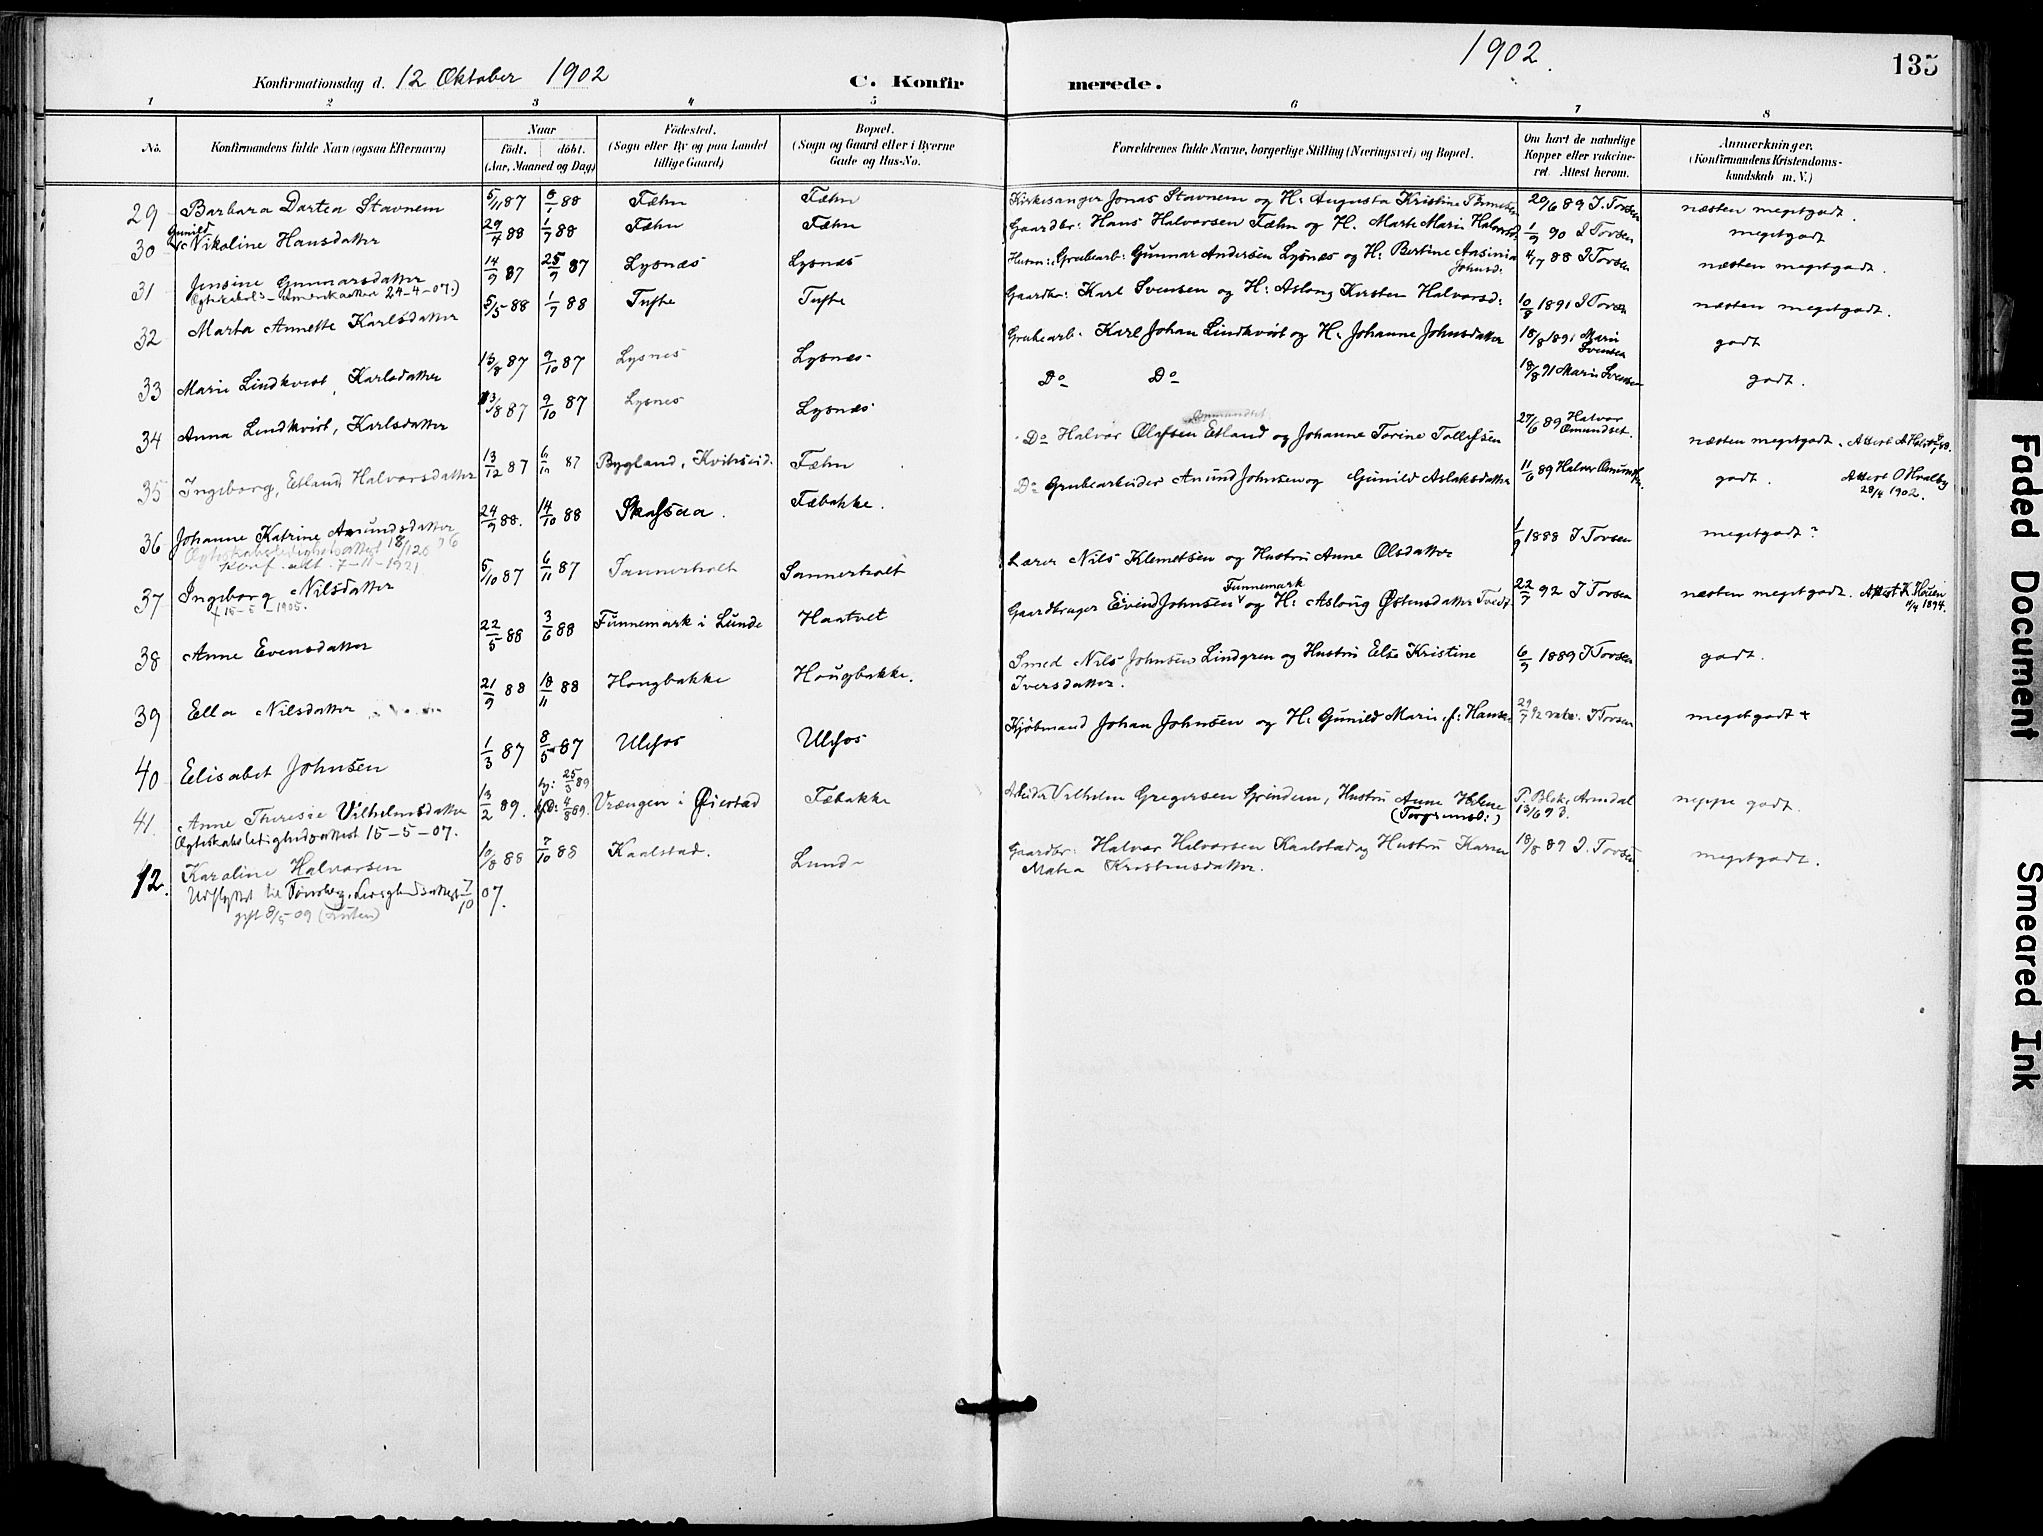 1902.
135
Konfirmationsdag d. 12 Oktober 1902
C. Konfirmerede.
1 2 3 4 5 6 7 8
No. Konfirmandens fulde Navn (ogsaa Efternavn) Naar født. døbt. (Aar, Maaned og Dag) Fødested. (Sogn eller By og paa Landet tillige Gaard) Bopæl. (Sogn og Gaard eller i Byerne Gade og Hus-No. Forældrenes fulde Navne, borgerlige Stilling (Næringsvei) og Bopæl. Om havt de naturlige Kopper eller vakcineret. Attest herom. Anmærkninger. (Konfirmandens Kristendomskundskab m. V.)
29 Barbara Dortea Stavnem 5/11 87 8/1 88 Fæhn Fæhn Kirkesanger Jonas Stavnem og H. Augusta Kristine 20/6 89 I. Torsen næsten megetgodt.
30 Gunild Nikoline Hansdatter 29/4 88 1/7 88 Fæhn Fæhn Gaardbr: Hans Halvorsen Fæhn og H. Marte Marie Halvorsd: 1/9 90 I Torsen megetgodt
31 Jensine Gunnarsdatter 14/9 87 25/9 87 Lysnæs Lysnæs Husm: Grubearb: Gunnar Andersen Lysnæs og H: Bertine Aasinia Johnsd: 4/7 88 I Torsen næsten megetgodt.
Ægteskabs- Amerikaattest 24-4-07.)
32 Marta Annette Karlsdatter 5/5 88 1/7 88 Tufte Tufte Gaardbr: Karl Svensen og H: Asloug Kirsten Halvorsd: 10/9 1891 I Torsen næsten megetgodt.
33 Marie Lindkvist, Karlsdatter 13/8 87 9/10 87 Lysnes Lysnæs Grubearb: Karl Johan Lindkvist og H. Johanne Johnsdatter 18/8 1891 Marie Svensen godt
34 Anna Lindkvist, Karlsdatter 13/8 87 9/10 87 Lysnes Lysnæs Do Do 18/8 91 Marie Svensen godt.
35 Ingeborg, Etland, Halvorsdatter 13/12 87 6/11 87 Bygland, Kvitseid. Fæhn Do Halvor Olefsen Etland og Johanne Torine Tollefsen 27/6 89 Halvor Omundset. næsten megetgodt. Attest
36 Johanne Katrine Amundsdatter 24/9 88. 14/10 88 Skafsaa. Fæbakke. Do Grubearbeider Amund Johnsen og Gunild Aslaksdatter 11/6 89 Halvor godt. Attest O Hvalby 28/4 1902.
Ægteskabsledighedsattest 18/1 26
Konf. att. 7-11-1921
37 Ingeborg Nilsdatter 5/10 87 6/11 87 Sannerholt Sannerholt Lærer Nils Klemetsen og Hustru Anne Olsdatter 1/9 1888 I Torsen megetgodt
+ 15-5-1905.
38 Anne Evensdatter 22/5 88 3/6 88 Funnemark i Lunde Haatvet Gaardbruger Eivind Johnsen Funnemark og H: Asloug Østensdatter Tvedt 22/7 92 I Torsen næsten megetgodt. Attest K. Høuen 11/4 1894.
39 Ella Nilsdatter 21/9 88 18/11 88 Hougbakke Hougbakke. Smed Nils Johnsen Lindgren og Hustru Else Kristine Iversdatter. 6/9 1889 I Torsen godt.
40 Elisabet Johnsen 1/3 87 8/5 87 Ulefos Ulefos Kjøbmand Johan Johnsen og H: Gunild Marie f: Hansen 29/7 92 vakc: I Torsen megetgodt
41. Anne Theresie Vilhelmsdatter 13/2 89. hj: 25/3 89 4/8 89. Vrængen i Øiestad Fæbakke Arbeider Vilhelm Gregersen Grindem, Hustru Anne Helene (Torgrimsd:) P. Blok, Arendal 13/6 93. neppe godt.
Ægteskabsledighedsattest 15-5-07.
12. Karoline Halvorsen 10/8 88 7/10 88 Kaalstad. Lunde Gaardbr: Halvor Halvorsen Kaalstad og Hustru Karen Matea Kristensdatter. 18/8 89 I. Torsen megetgodt.
Udflyttet til Tønsberg. Ledighedsattest 7/10 07.
gift 8/5 09
Faded Document
Smeared Ink